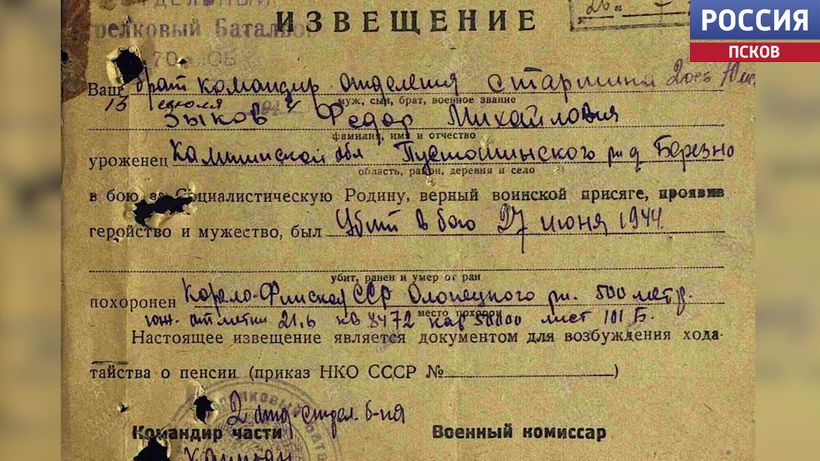 РОССИЯ
ПСКОВ
ИЗВЕЩЕНИЕ
Стрелковый Батальон
70
Ваш брат командир отделения старшина
13 июля
муж, сын, брат, военное звание
Зыков Федор Михайлович
фамилия, имя и отчество
уроженец Калининской обл Пустошинского р-н д Березно
область, район, деревня и село
в бою за Социалистическую Родину, верный воинской присяге, проявив
геройство и мужество, был Убит в бою 27 июня 1944
убит, ранен и умер от ран
похоронен Карело-Финской ССР Олонецкого рн. 500 метр.
место похорон
юж. отметки 21,6 кв 3472 кар 50000 лист 101 Б.
Настоящее извещение является документом для возбуждения хода-
тайства о пенсии (приказ НКО СССР № )
2 отд. стрел. б-на
Командир части Военный комиссар
Капитан